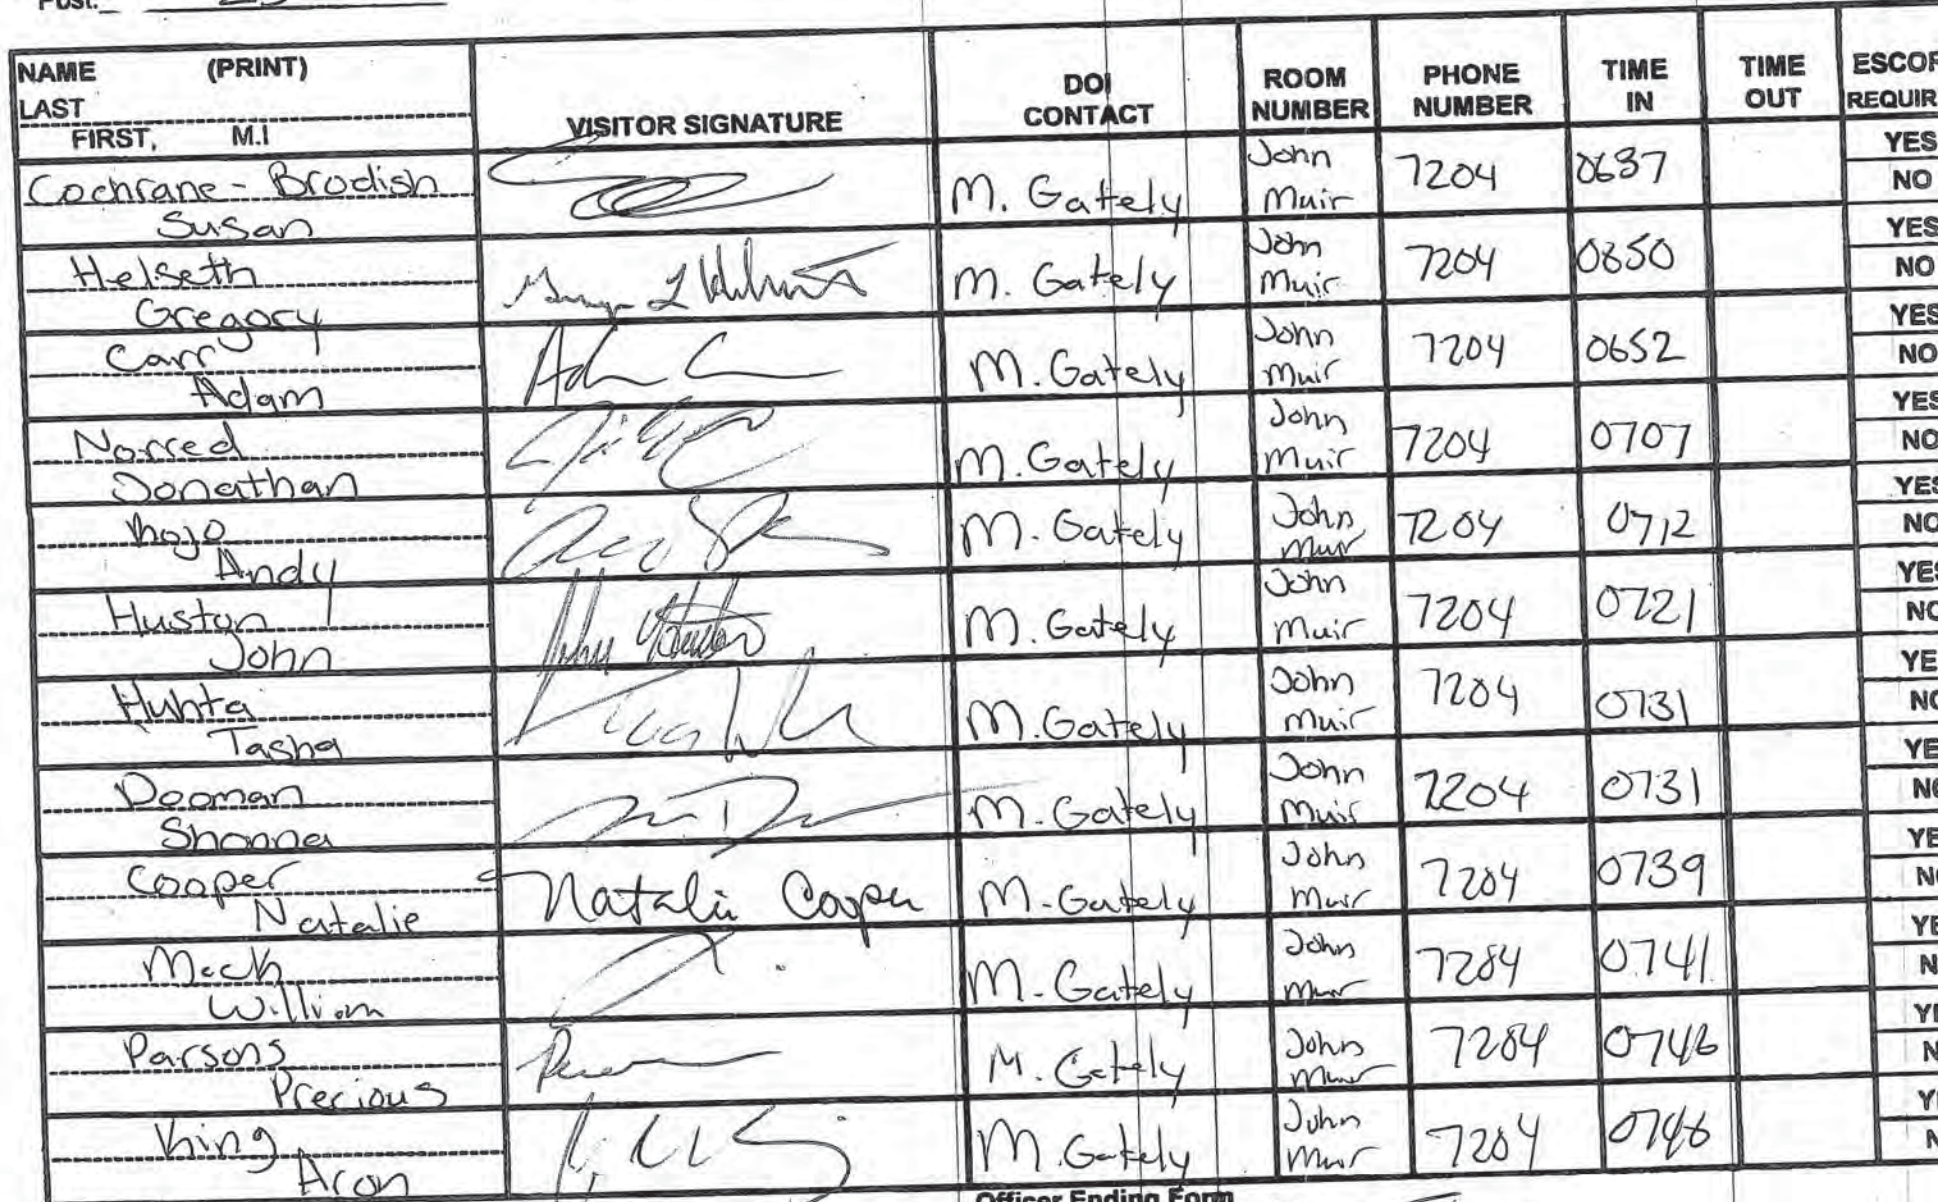 Post: 23
NAME (PRINT)
LAST
FIRST, M.I
VISITOR SIGNATURE
DOI CONTACT
ROOM NUMBER
PHONE NUMBER
TIME IN
TIME OUT
ESCOR
REQUIR
Cochrane - Brodish
Susan
M. Gately
John
Muir
7204
0637
YES
NO
Helseth
Gregory
M. Gately
John
Muir
7204
0650
YES
NO
Carr
Adam
M. Gately
John
Muir
7204
0652
YES
NO
Norred
Jonathan
M. Gately
John
Muir
7204
0707
YES
NO
Rojo
Andy
M. Gately
John
Muir
7204
0712
YES
NO
Huston
John
M. Gately
John
Muir
7204
0721
YES
NO
Huhta
Tasha
M. Gately
John
Muir
7204
0731
YE
NO
Dooman
Shanna
M. Gately
John
Muir
7204
0731
YE
NO
Cooper
Natalie
Natalie Cooper
M. Gately
John
Muir
7204
0739
YE
NO
Mack
William
M. Gately
John
Muir
7204
0741
YE
N
Parsons
Precious
M. Gately
John
Muir
7204
0746
YE
N
King
Aron
M. Gately
John
Muir
7204
0746
Y
N
Officer Ending Form